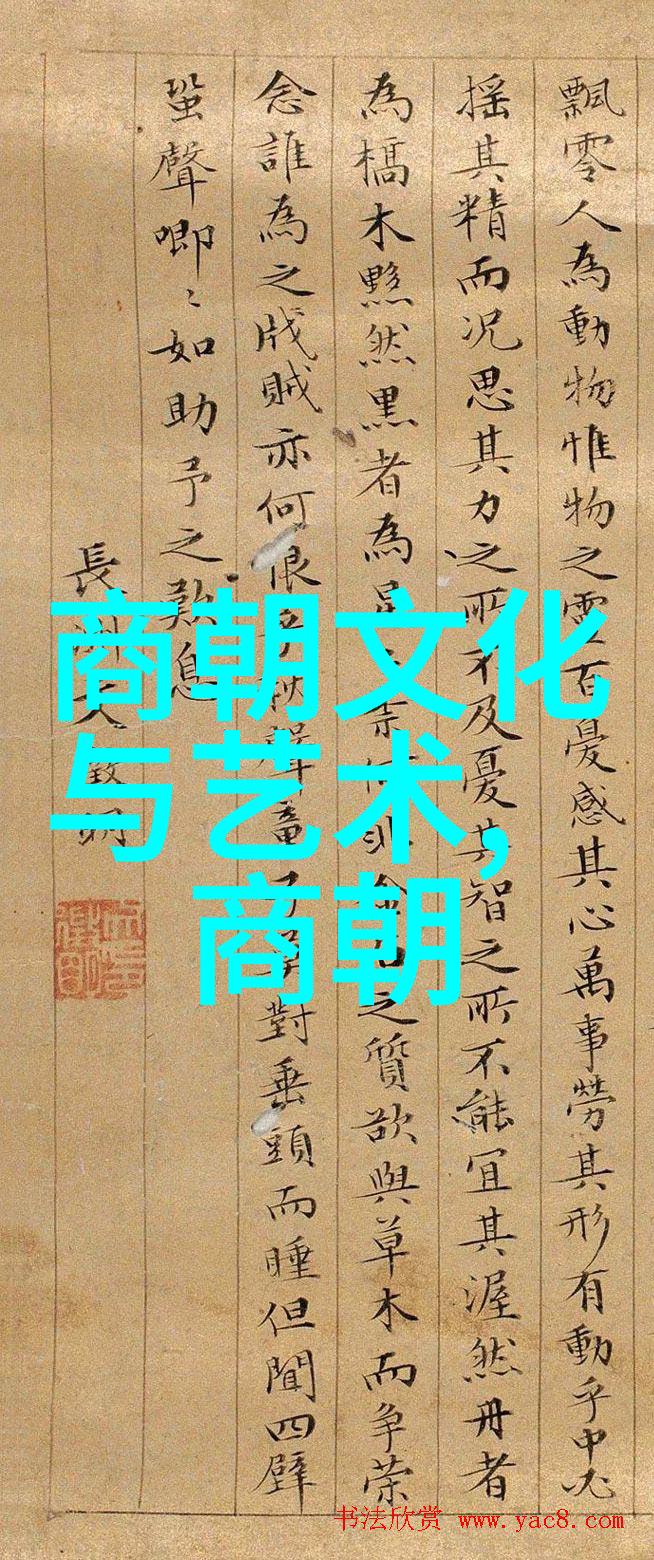 飄零人為動物惟物之靈百憂感其心萬事勞其形有動乎中必
摇其精而况思其力之所不及憂其智之所不能宜其渥然丹者
為槁木黟然黒者為星
之質欲與草木而争荣
念誰為之戕賊亦何恨乎秋聲童子莫對垂頭而睡但聞四壁
蛩聲唧〻如助予之歎息
長洲文徵明
商朝文化
与艺术,
商朝
书法欣赏 www.yac8.com